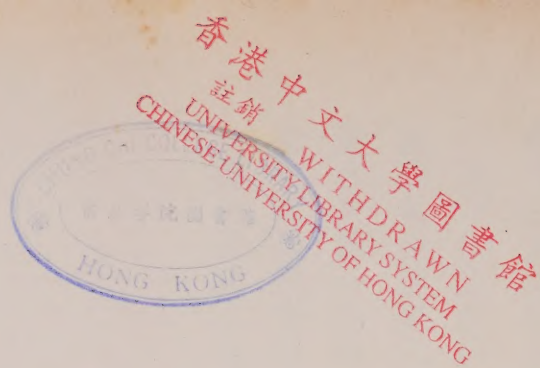 香港中文大學圖書館
註銷 WITHDRAWN
UNIVERSITY LIBRARY SYSTEM
CHINESE UNIVERSITY OF HONG KONG
CHUNG CHI COLLEGE
崇基學院圖書館
HONG KONG